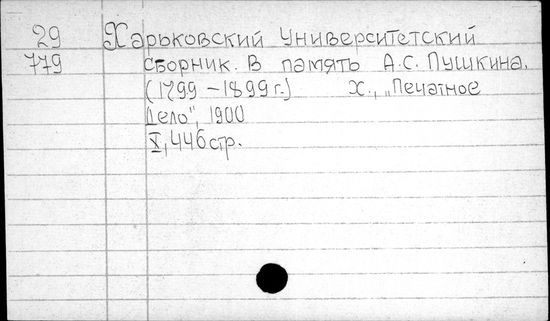 29 Харьковский университетский
779 сборник. В память А.С. Пушкина.
(1799 – 1899 г.) Х., „Печатное
Дело", 1900
X, 446 стр.